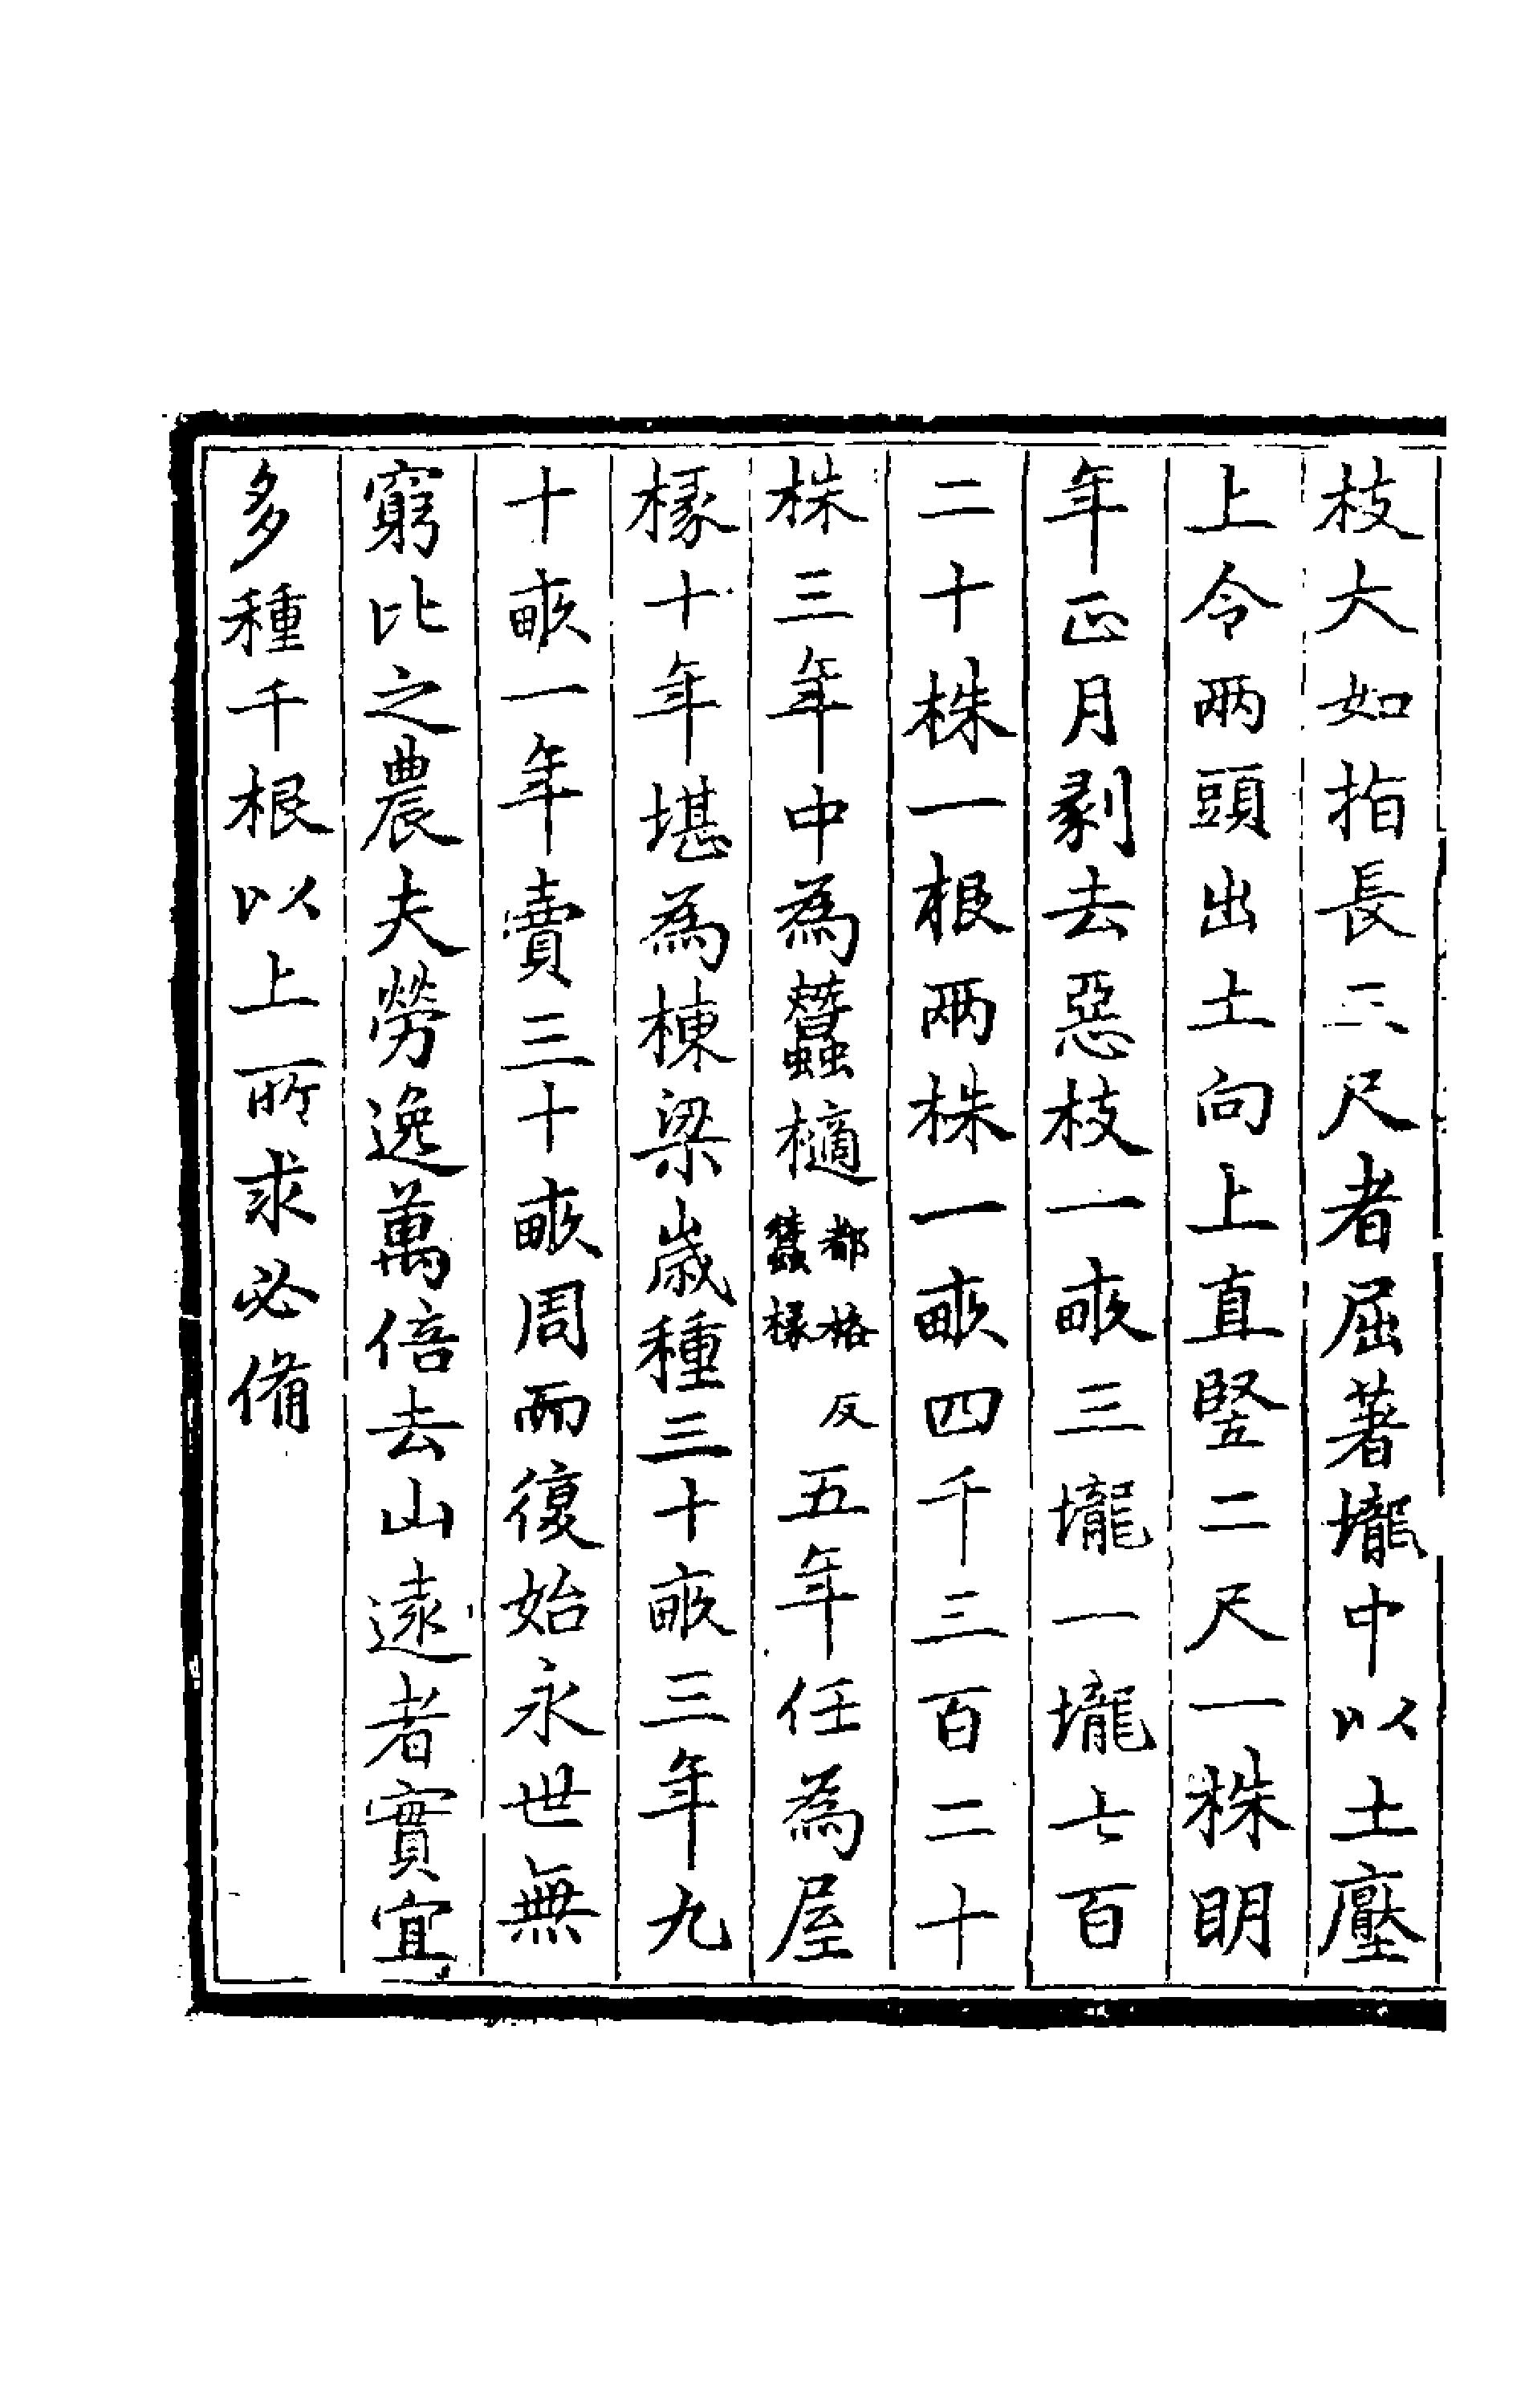 枝大如指長三尺者屈著壠中以土壓
上令兩頭出土向上直竪二尺一株明
年正月剥去惡枝一畝三壠一壠七百
二十株一根兩株一畝四千三百二十
株三年中為蠶樀都格反蠶椽五年任為屋
椽十年堪為棟梁嵗種三十畝三年九
十畝一年賣三十畝周而復始永世無
窮比之農夫勞逸萬倍去山逺者實宜
多種千根以上所求必偹